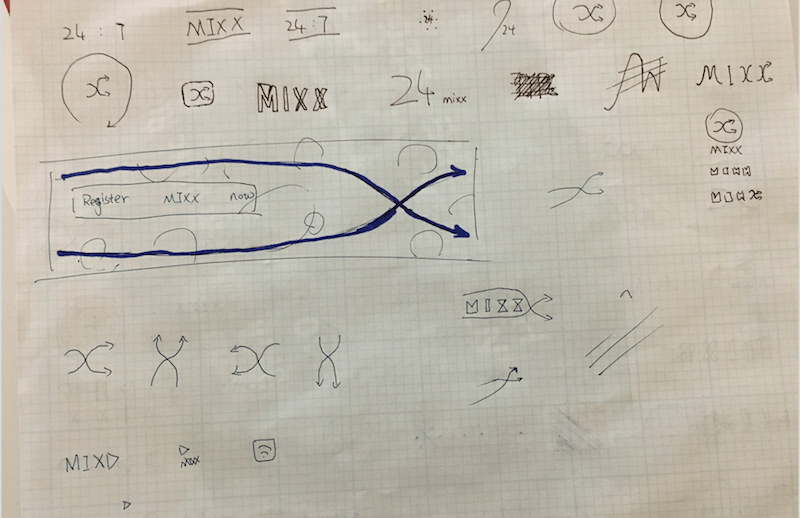 24 : 7
MIXX
24:7
24
24
MIXX
24 mixx
MIXX
MIXX
MIXX
MIXX
Register MIXX now
MIXX
MIX
MIXX